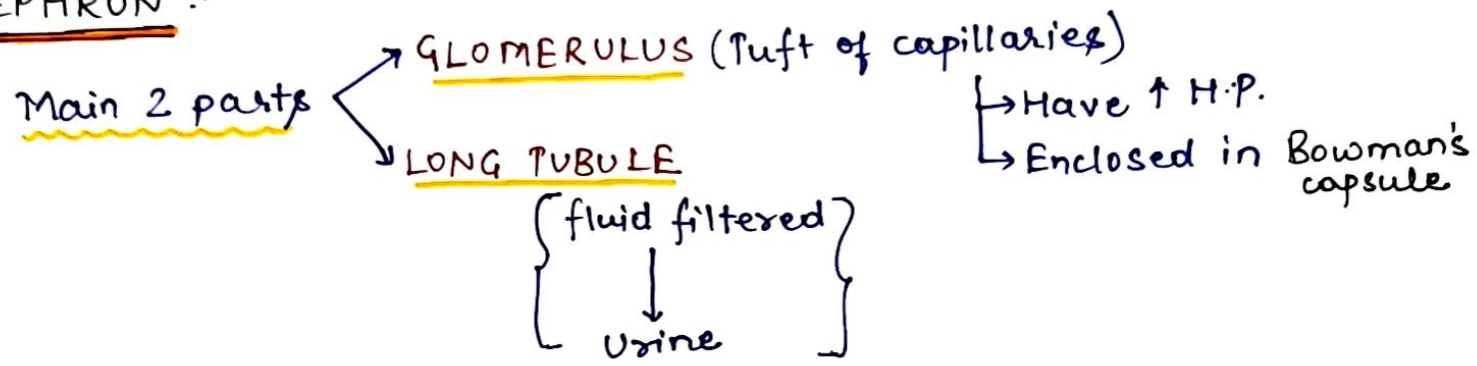 EPHRON :
GLOMERULUS (Tuft of capillaries)
Main 2 parts
→ Have ↑ H.P.
→ Enclosed in Bowman's
capsule
LONG TUBULE
{ fluid filtered }
↓
Urine